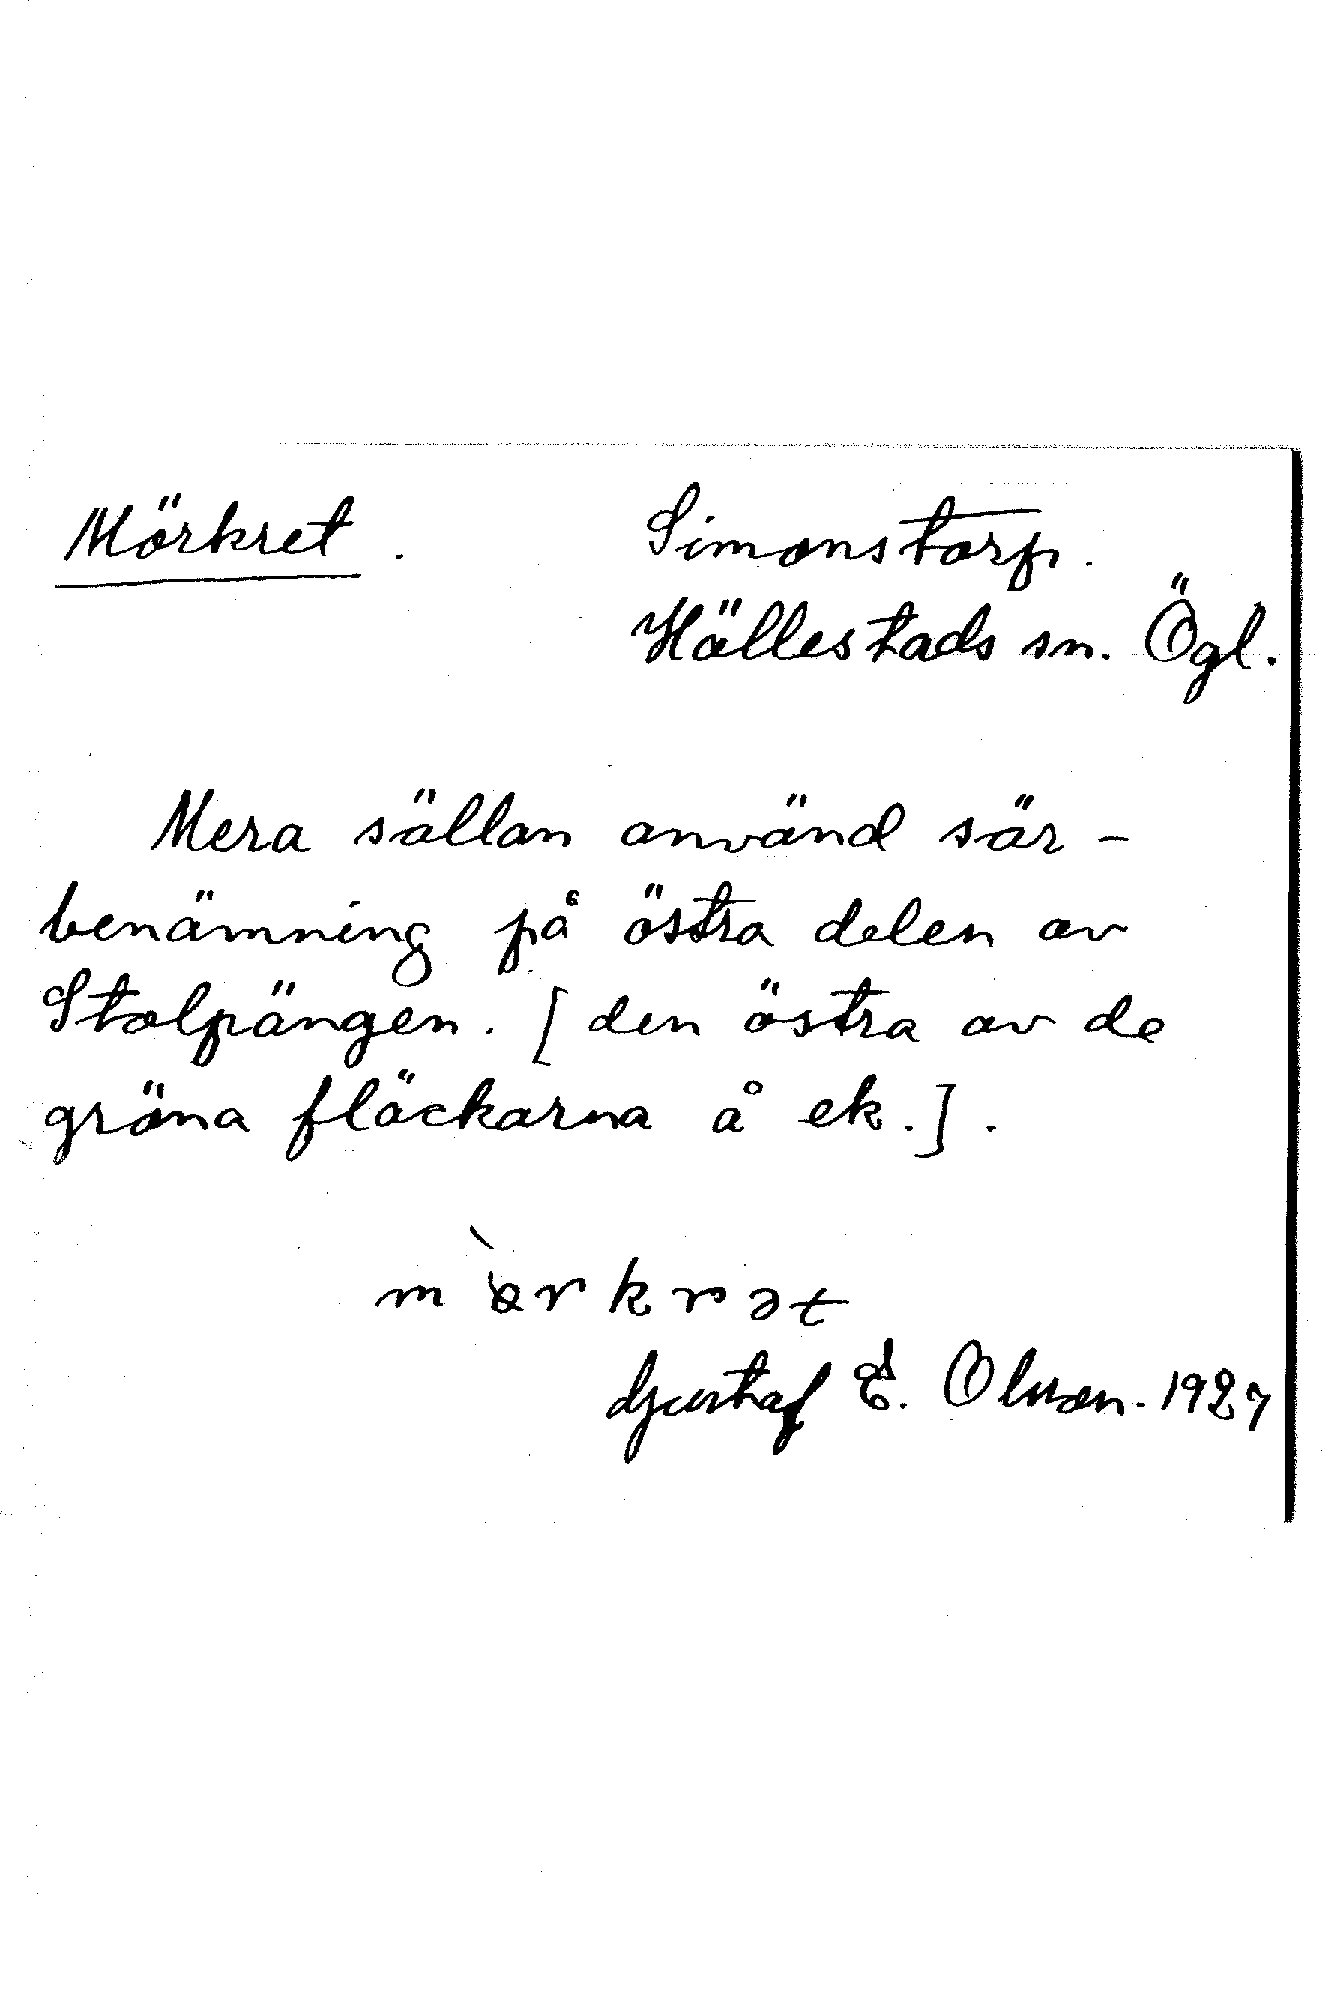 Mörkret.
Simonstorp.
Hällestads sn. Ögl.
Mera sällan använd sär-
benämning på östra delen av
Stolpängen. [den östra av de
gröna fläckarna å ek.].
Gustaf E. Olsson. 1927